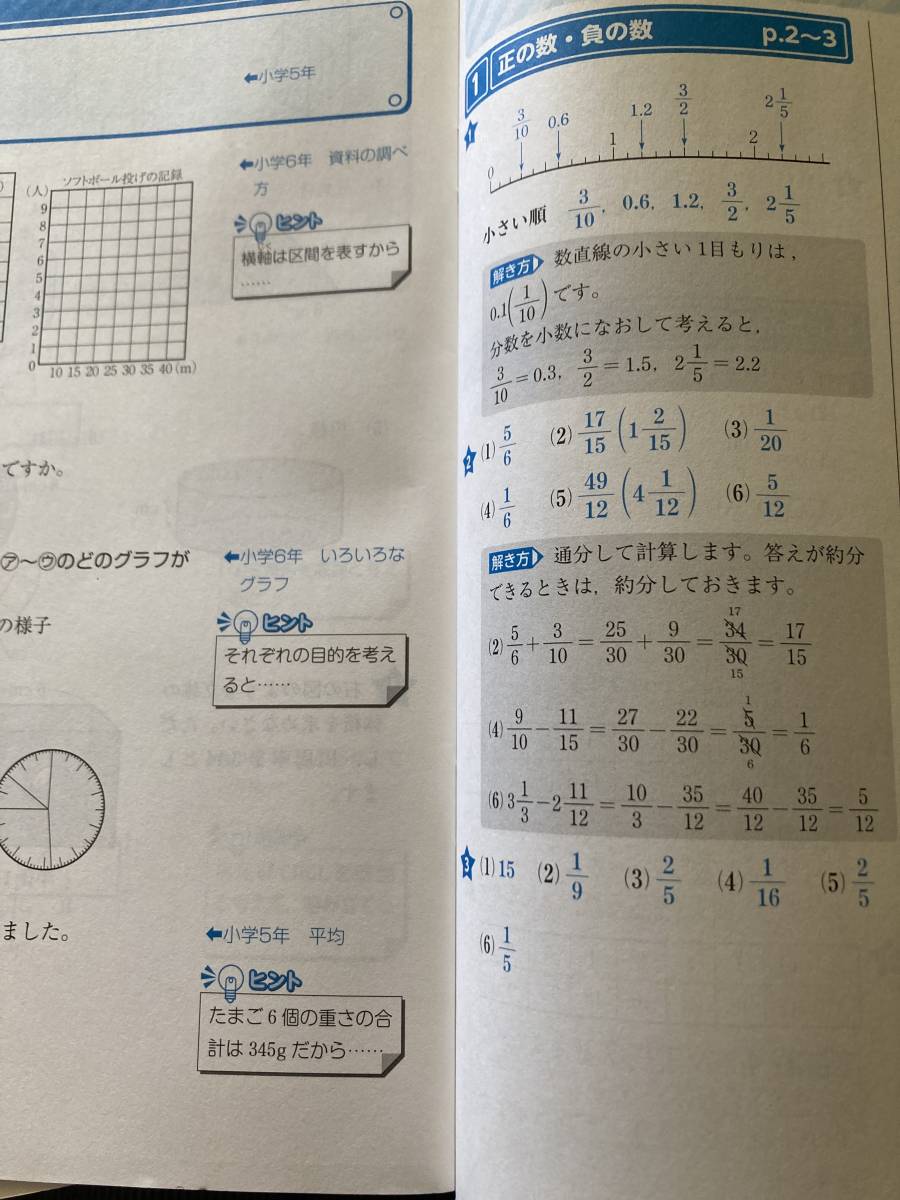 ←小学5年
←小学6年 資料の調べ
方
ヒント
横軸は区間を表すから
……
ソフトボール投げの記録
(人)
9
8
7
6
5
4
3
2
1
0
10 15 20 25 30 35 40 (m)
ですか。
㋐〜㋒のどのグラフが
の様子
←小学6年 いろいろな
グラフ
ヒント
それぞれの目的を考え
ると……
ました。
←小学5年 平均
ヒント
たまご6個の重さの合
計は345gだから……
1 正の数・負の数 p.2〜3
1
3/10 0.6 1.2 3/2 2 1/5
0 1 2
小さい順 3/10, 0.6, 1.2, 3/2, 2 1/5
解き方 数直線の小さい1目もりは,
0.1(1/10)です。
分数を小数になおして考えると,
3/10=0.3, 3/2=1.5, 2 1/5=2.2
2 (1) 5/6 (2) 17/15 (1 2/15) (3) 1/20
(4) 1/6 (5) 49/12 (4 1/12) (6) 5/12
解き方 通分して計算します。答えが約分
できるときは, 約分しておきます。
(2) 5/6+3/10=25/30+9/30=34/30=17/15
17
15
(4) 9/10-11/15=27/30-22/30=5/30=1/6
1
6
(6) 3 1/3-2 11/12=10/3-35/12=40/12-35/12=5/12
3 (1) 15 (2) 1/9 (3) 2/5 (4) 1/16 (5) 2/5
(6) 1/5